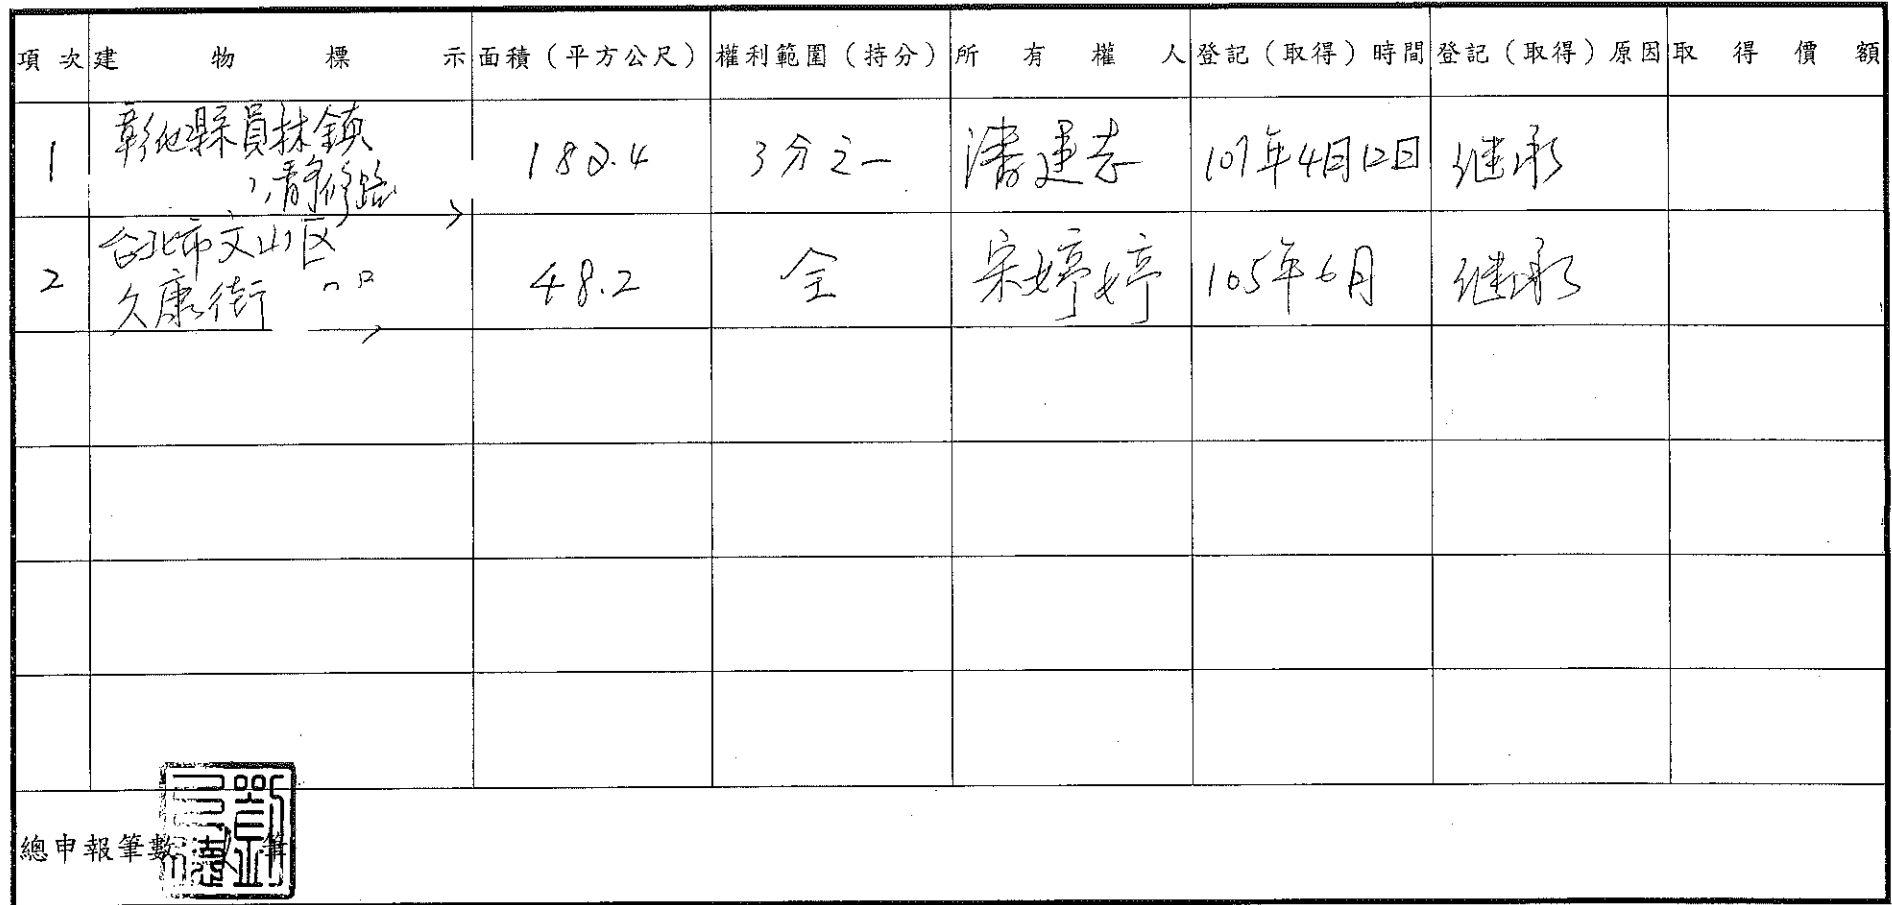 項次 建物標示 面積（平方公尺） 權利範圍（持分） 所有權人 登記（取得）時間 登記（取得）原因 取得價額
1 彰化縣員林鎮 182.4 3分之一 潘建志 107年4月12日 继承
靜修路
2 台北市文山区 48.2 全 宋婷婷 105年6月 继承
久康街
總申報筆數 筆